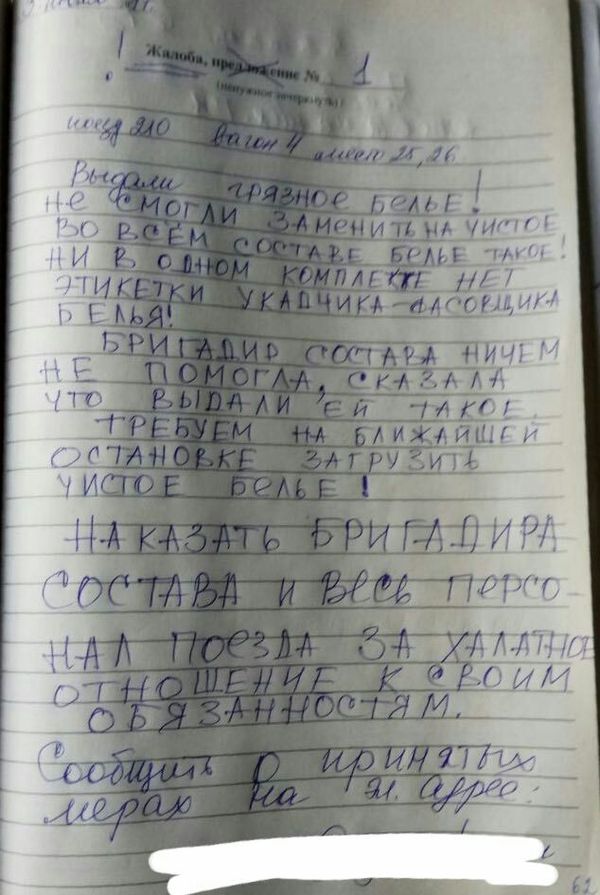 ! Жалоба, предложение № 1
(ненужное зачеркнуть)
поезд 210 Вагон 4 место 25, 26
Выдали грязное белье!
не смогли заменить на чистое
во всём составе белье такое!
ни в одном комплекте нет
этикетки укадчика-фасовщика
белья!
Бригадир состава ничем
не помогла, сказала
что выдали ей такое.
требуем на ближайшей
остановке загрузить
чистое белье!
Наказать бригадира
состава и весь персо-
нал поезда за халатное
отношение к своим
обязанностям.
Сообщить о принятых
мерах на эл. адрес:
62